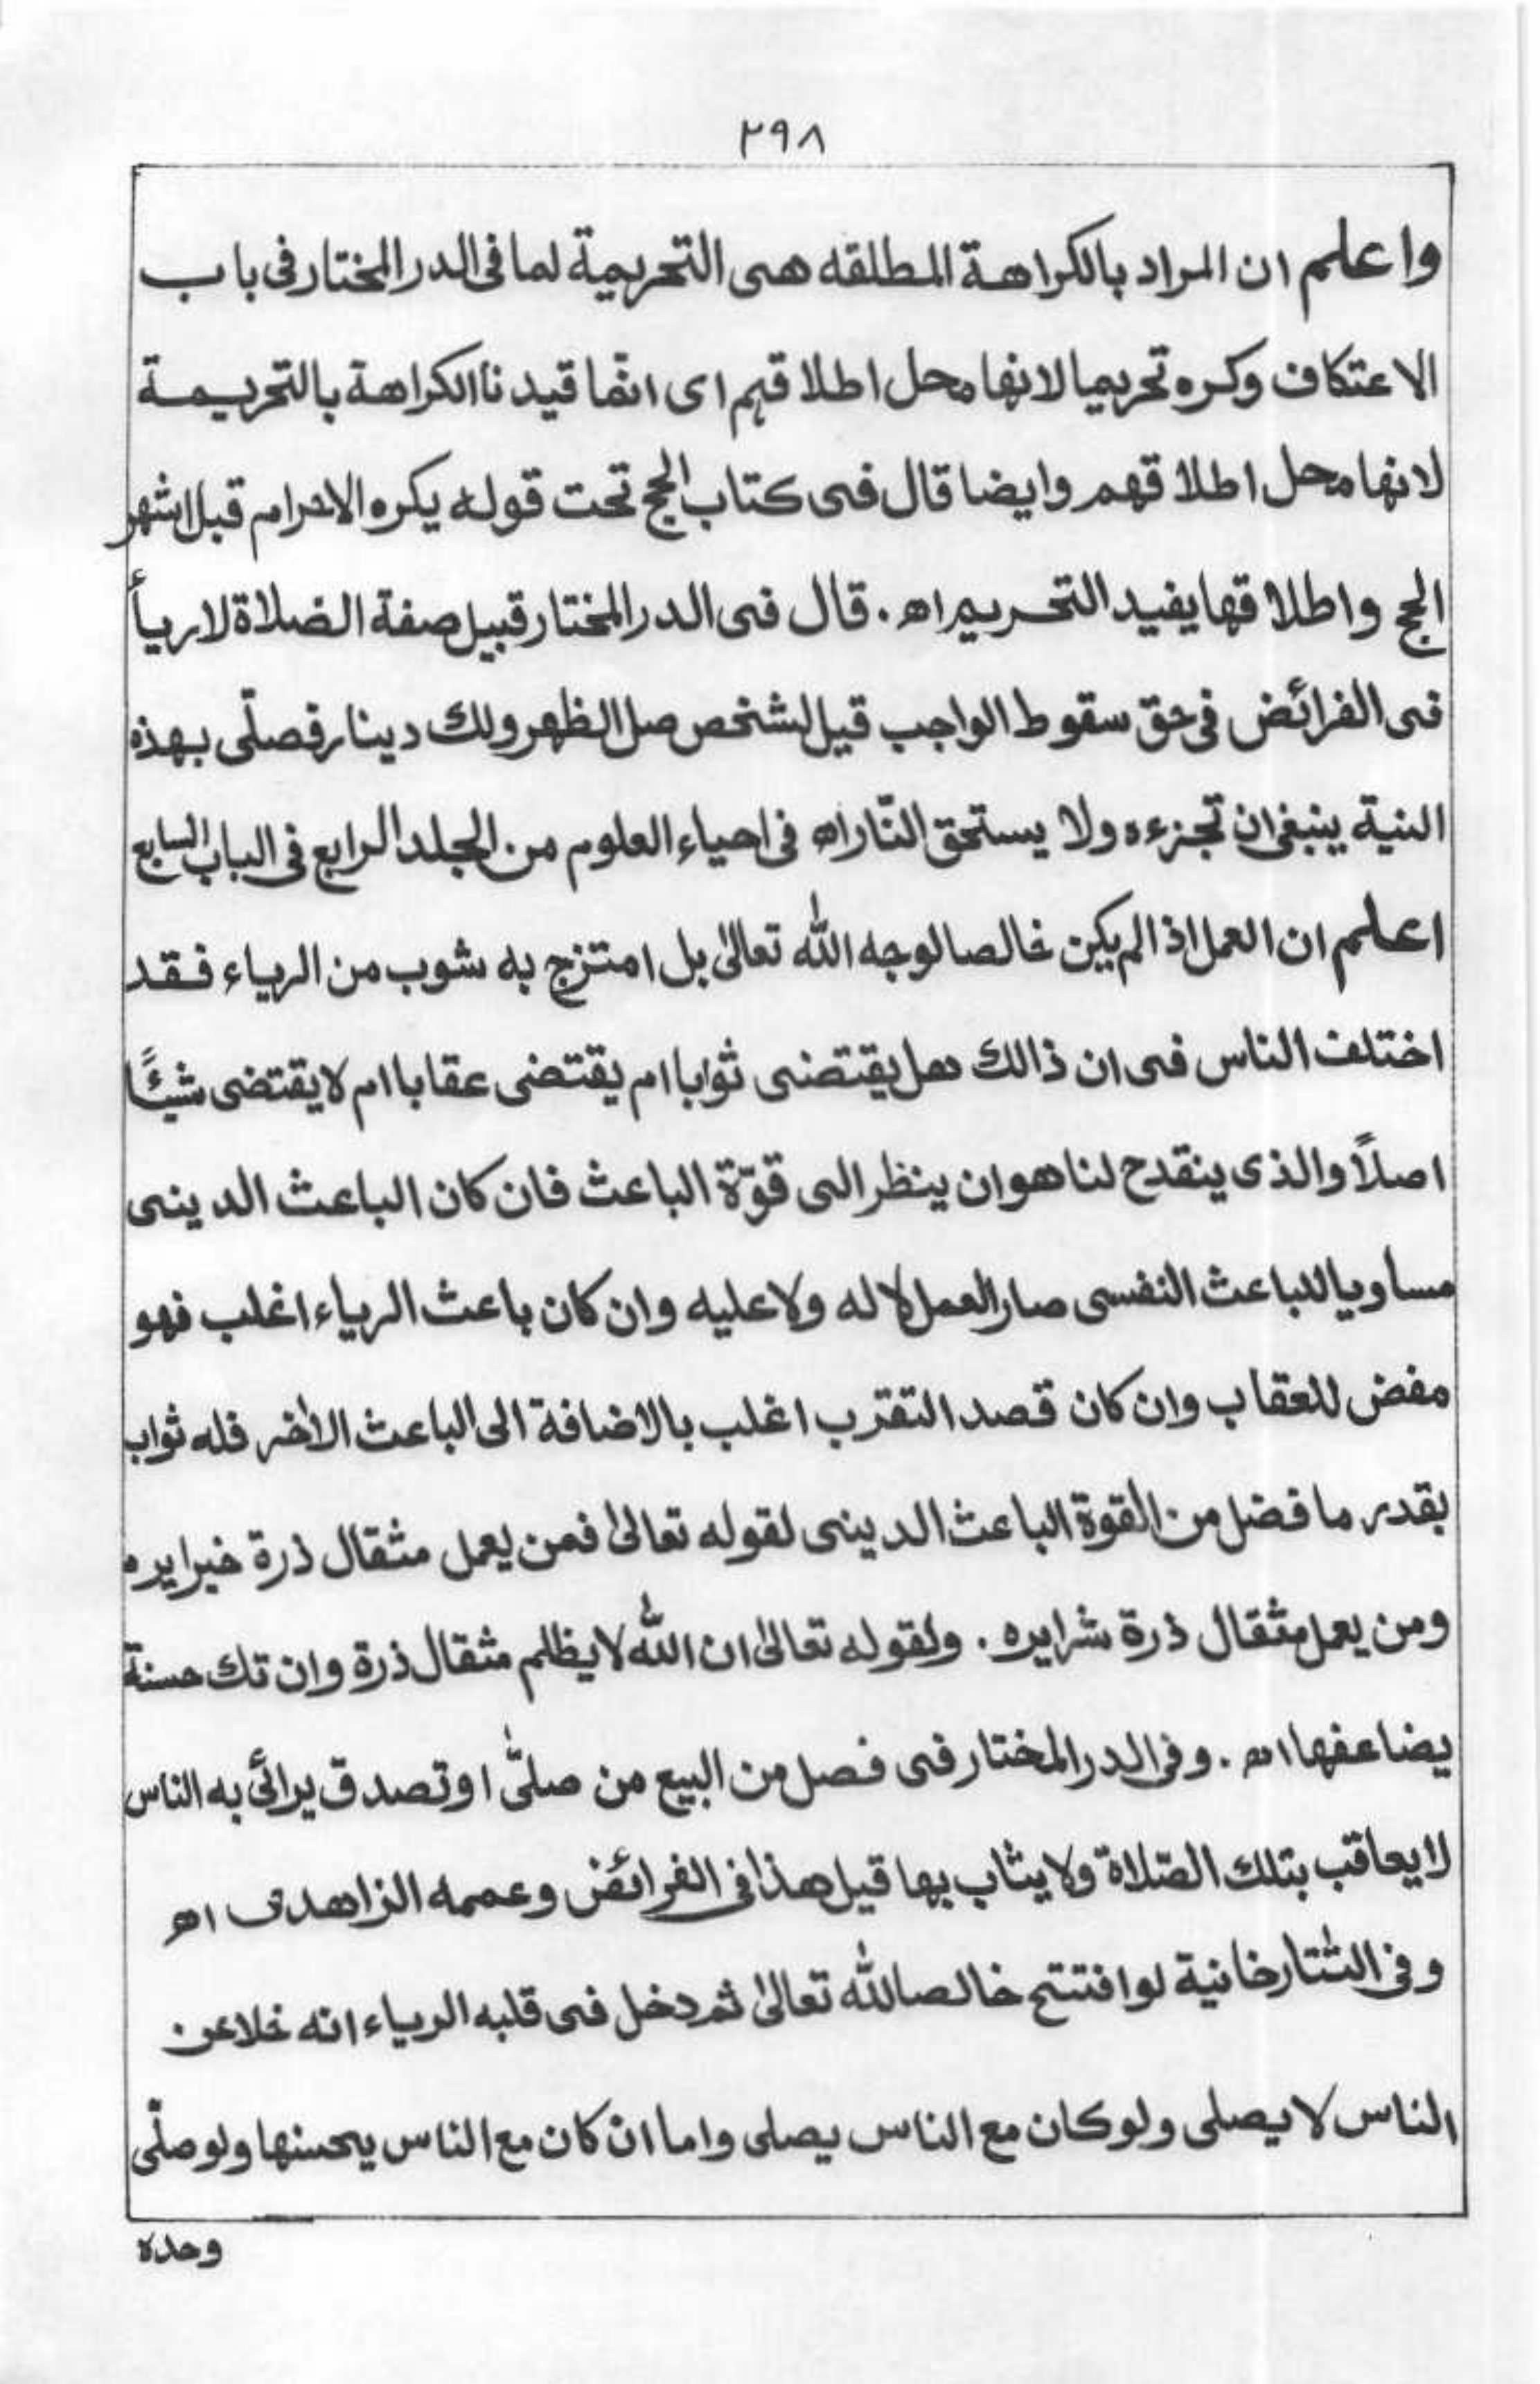 ٢٩٨
واعلم ان المراد بالكراهة المطلقه هى التحريمية لما فى الدر المختار فى باب
الاعتكاف وكره تحريما لانها محل اطلاقهم اى انما قيدنا الكراهة بالتحريمة
لانها محل اطلاقهم وايضا قال فى كتاب الحج تحت قوله يكره الاحرام قبل اشهر
الحج واطلاقها يفيد التحريم اه . قال فى الدر المختار قبيل صفة الصلاة لا رياأ
فى الفرائض فى حق سقوط الواجب قيل لشخص صل الظهر ولك دينار فصلّى بهذه
النية ينبغى ان تجزءه ولا يستحق النّار اه فى احياء العلوم من الجلد الرابع فى الباب السابع
اعلم ان العمل اذا لم يكن خالصا لوجه الله تعالىٰ بل امتزج به شوب من الرياء فقد
اختلف الناس فى ان ذالك هل يقتضى ثوابا ام يقتضى عقابا ام لا يقتضى شيئًا
اصلاً والذى ينقدح لنا هو ان ينظر الى قوّة الباعث فان كان الباعث الدينى
مساويا للباعث النفسى صار العمل لا له ولا عليه وان كان باعث الرياء اغلب فهو
مفض للعقاب وان كان قصد التقرب اغلب بالاضافة الى الباعث الأخر فله ثواب
بقدر ما فضل من القوة الباعث الدينى لقوله تعالىٰ فمن يعمل مثقال ذرة خيرا يره
ومن يعمل مثقال ذرة شرا يره . ولقوله تعالىٰ ان الله لا يظلم مثقال ذرة وان تك حسنة
يضاعفها اه . وفى الدر المختار فى فصل من البيع من صلىّٰ او تصدق يرائى به الناس
لا يعاقب بتلك الصّلاة ولا يثاب بها قيل هذا فى الفرائض وعممه الزاهدى اه
وفى التتارخانية لو افتتح خالصا لله تعالىٰ ثم دخل فى قلبه الرياء انه خلا عن
الناس لا يصلى ولو كان مع الناس يصلى واما ان كان مع الناس يحسنها ولو صلّى
وحده